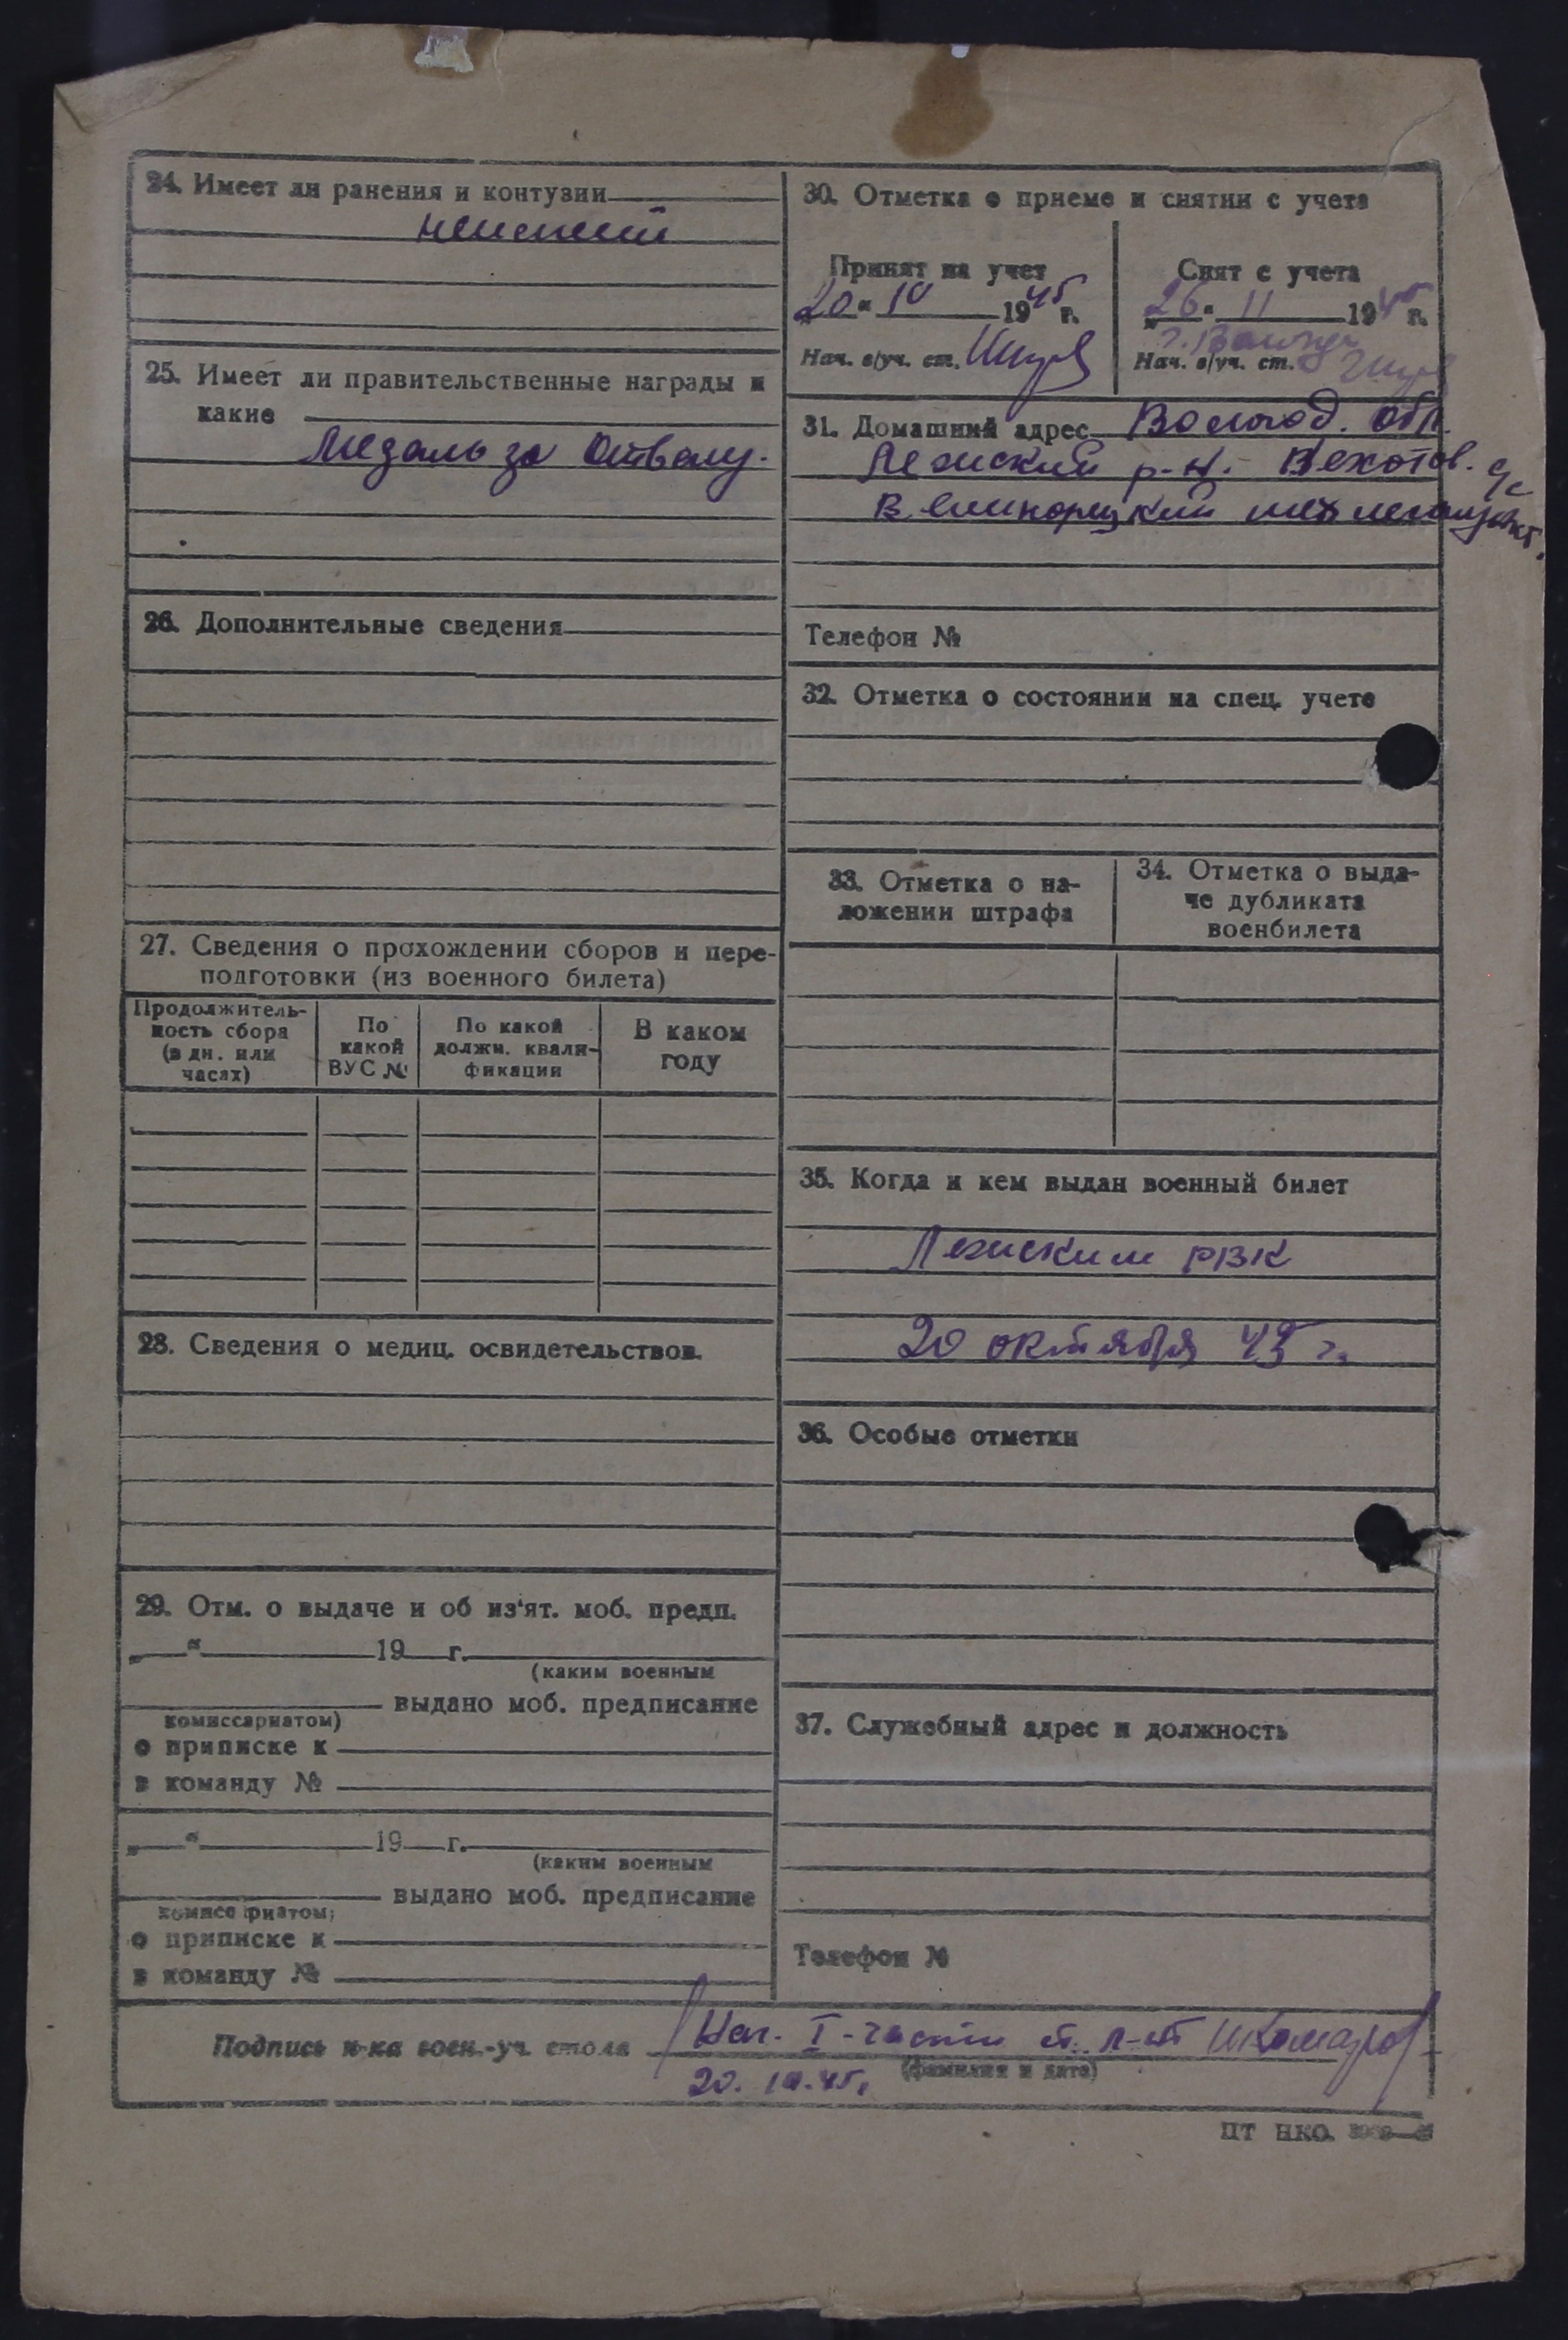 24. Имеет ли ранения и контузии
25. Имеет ли правительственные награды и
какие
Медаль за Отвагу.
26. Дополнительные сведения
27. Сведения о прохождении сборов и пере-
подготовки (из военного билета)
Продолжитель-
ность сбора
(в дн. или
часах)
По
какой
ВУС №
По какой
должн. квали-
фикации
В каком
году
28. Сведения о медиц. освидетельствов.
29. Отм. о выдаче и об из'ят. моб. предп.
„ “ 19 г.
(каким военным
выдано моб. предписание
комиссариатом)
о приписке к
в команду №
„ “ 19 г.
(каким военным
выдано моб. предписание
комиссариатом)
о приписке к
в команду №
30. Отметка о приеме и снятии с учета
Принят на учет
20 “ 10 1945 г.
Нач. в/уч. ст.
Снят с учета
26 “ 11 1945 г.
Нач. в/уч. ст.
31. Домашний адрес Вологод. обл.
Лежский р-н. с/с
Телефон №
32. Отметка о состоянии на спец. учете
33. Отметка о на-
ложении штрафа
34. Отметка о выда-
че дубликата
военбилета
35. Когда и кем выдан военный билет
Лежским РВК
20 октября 45 г.
36. Особые отметки
37. Служебный адрес и должность
Телефон №
Подпись н-ка воен.-уч. стола Нач. I-части ст. л-т
(фамилия и дата)
20.10.45г
ЦТ НКО.